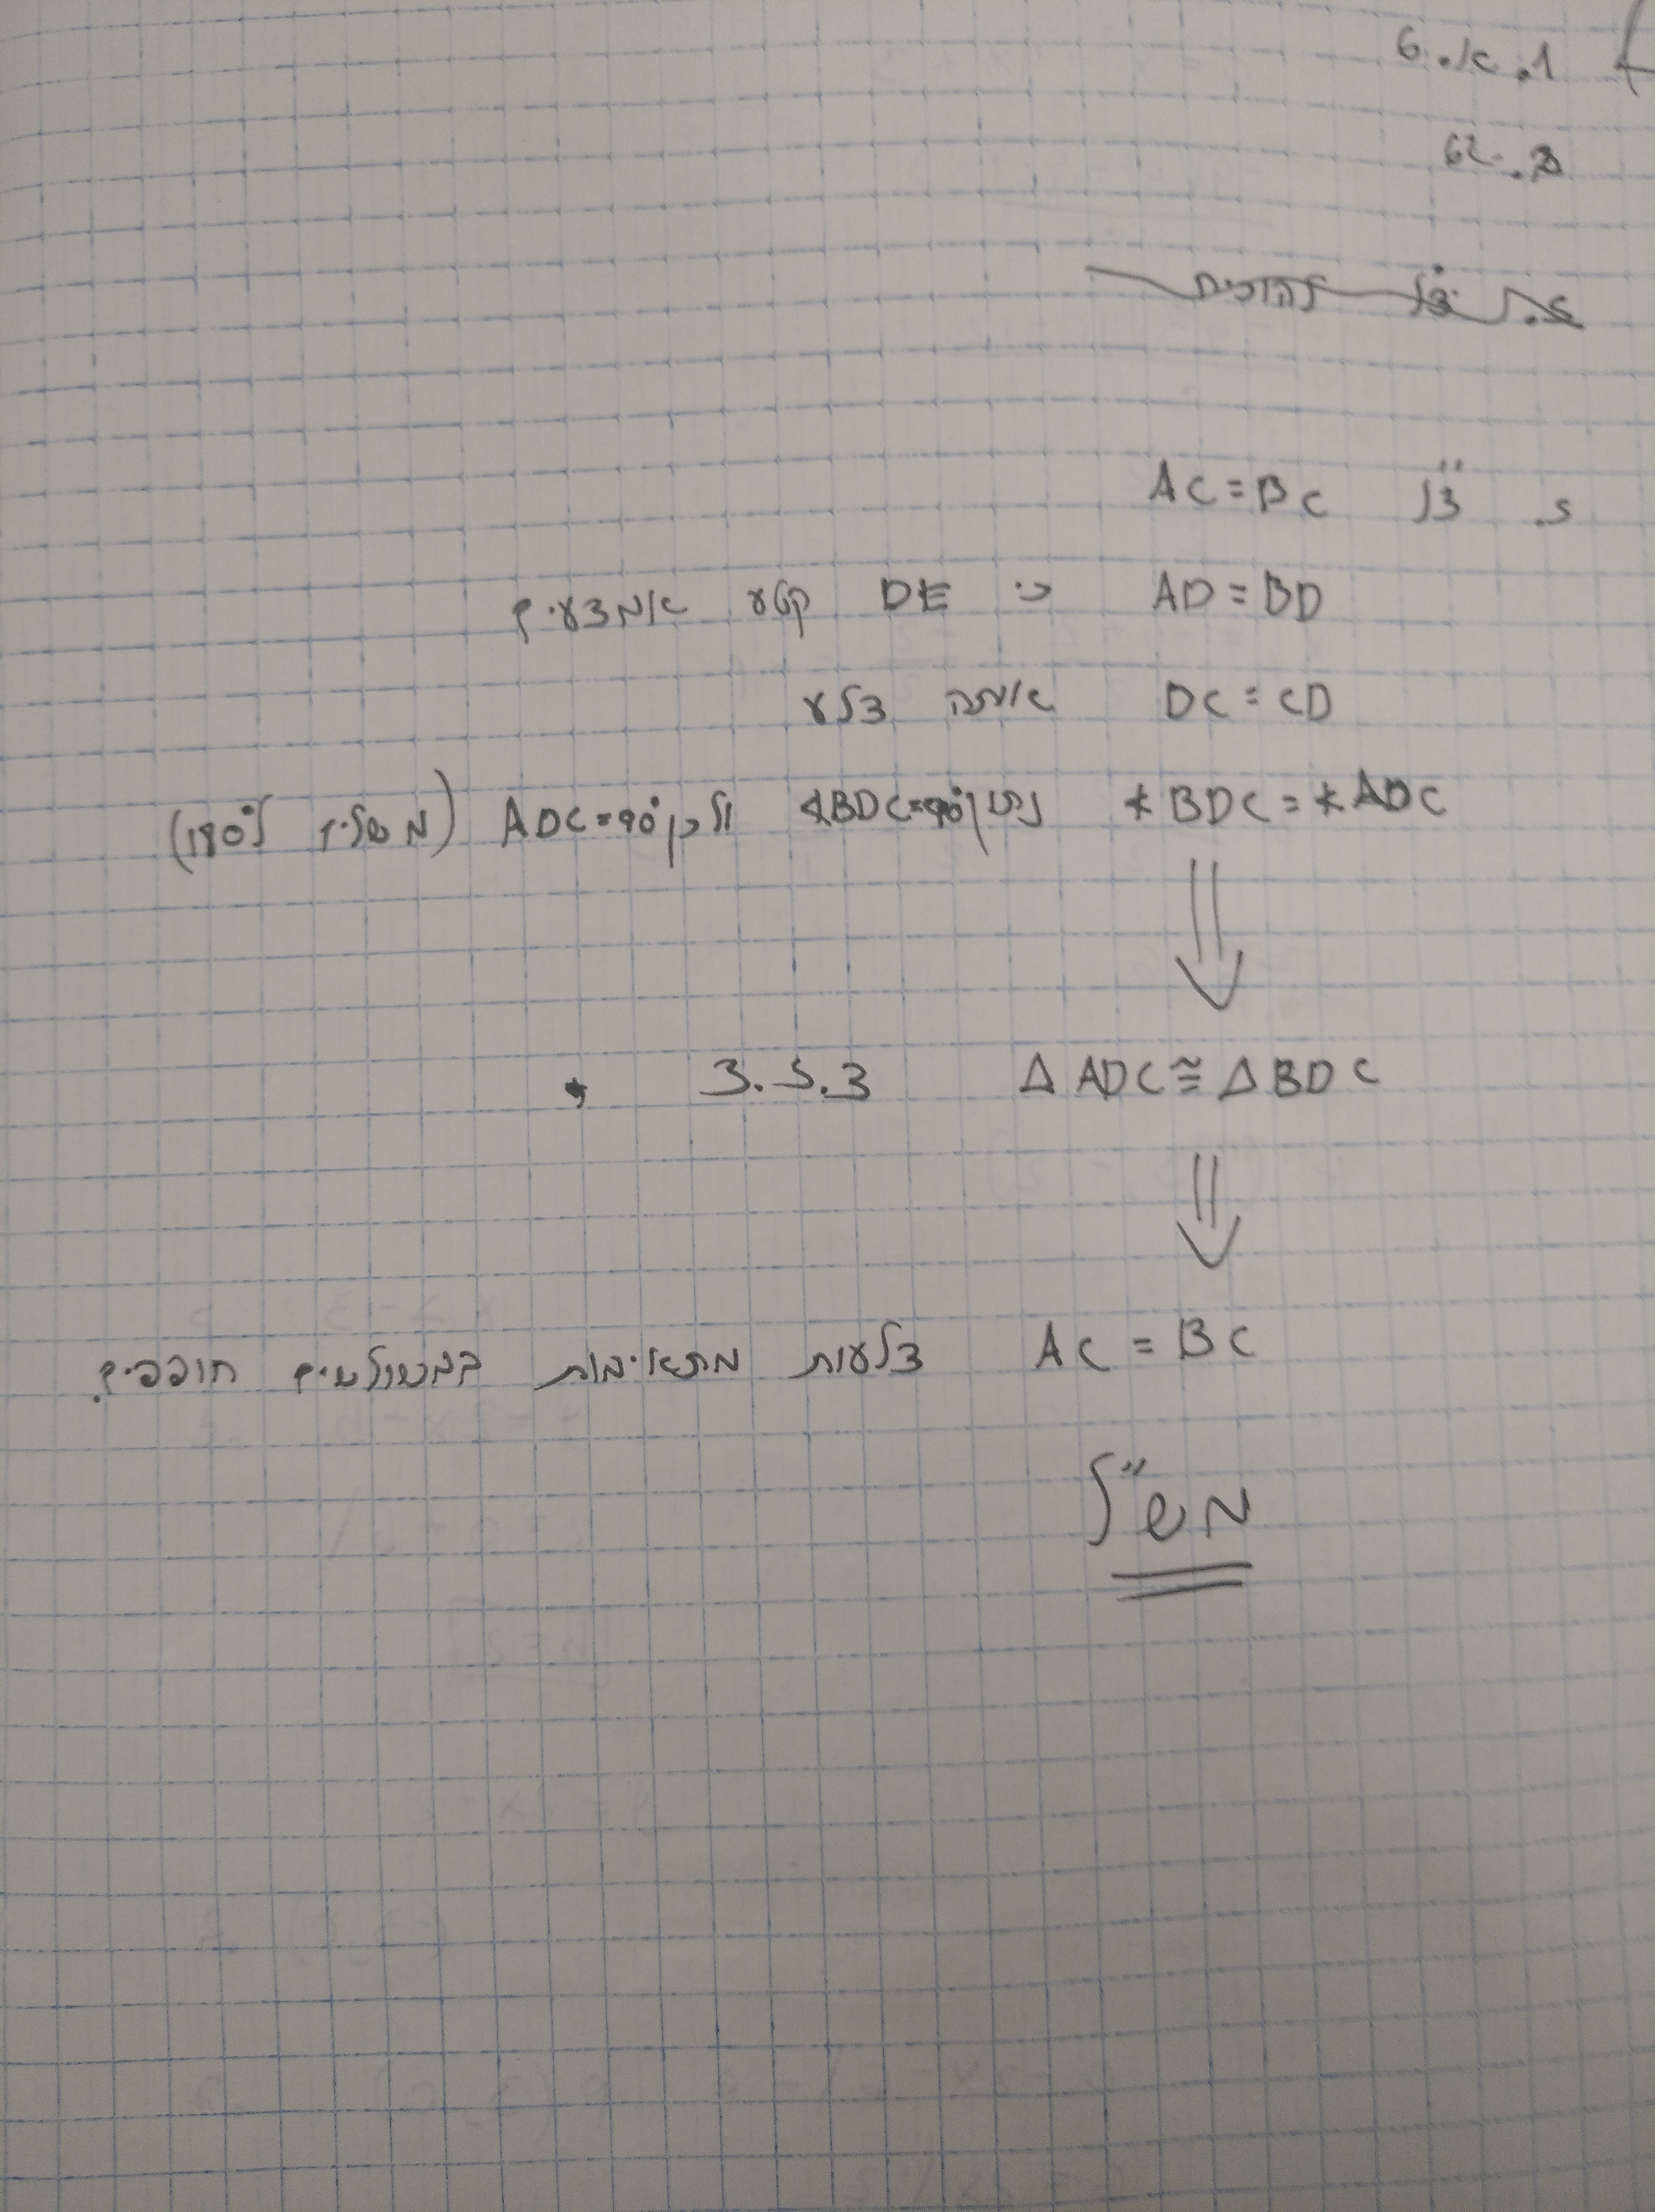 1. א. 6
ב. 62
צ"ל AC = BC
AD = BD כי DE קטע אמצעים
DC = CD אותה צלע
∢BDC = ∢ADC נתון ∢BDC=90° ולכן ADC=90° (משלים ל180°)
Δ ADC ≅ Δ BDC צ.ז.צ
AC = BC צלעות מתאימות במשולשים חופפים.
מש"ל